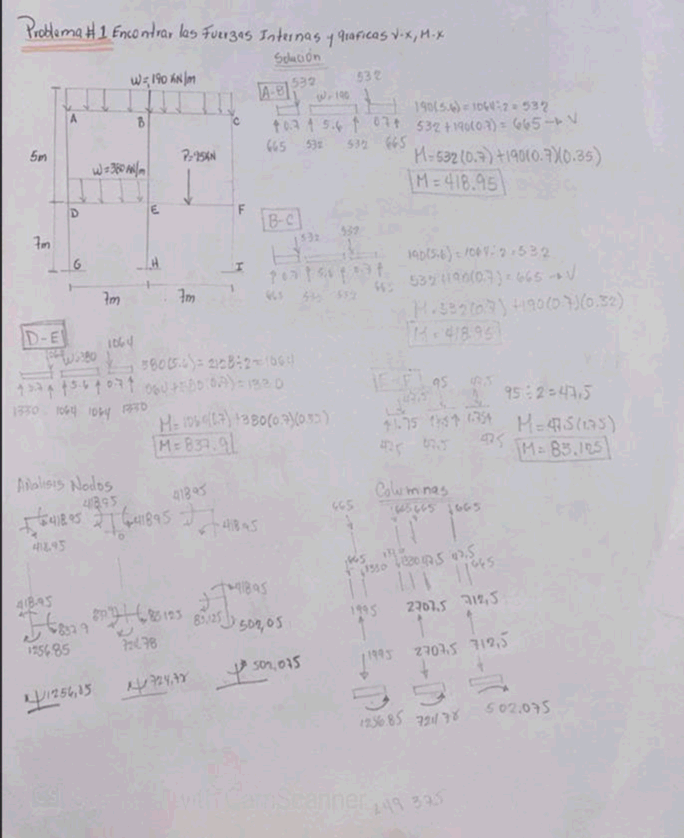 Problema #1 Encontrar las Fuerzas Internas y graficas V-x, M-x
Solución
W=190 KN/m
A B C
5m
W=380 KN/m
P=95KN
D E F
7m
G H I
7m 7m
A-B
532 532
W=190
0.7 5.6 0.7
665 532 532 665
190(5.6)=1064÷2=532
532+190(0.7)=665→V
M=532(0.7)+190(0.7)(0.35)
M=418.95
B-C
532 532
0.7 5.6 0.7
665 532 532 665
190(5.6)=1064÷2=532
532+190(0.7)=665→V
M=532(0.7)+190(0.7)
M=418.95
D-E
1064 W=380 1064
0.7 5.6 0.7
1330 1064 1064 1330
M=837.9
E-F
47.5 95 47.5
1.75
47.5 47.5 47.5
95÷2=47,5
M=47.5(1.75)
M=83.125
Análisis Nodos
418.95 418.95 418.95 418.95 418.95
418.95 0
418.95 837.9 83.125 418.95
1256.85 724.78 83.125 502,05
1256,85 724,78 502,075
Columnas
665 665 665 665
665 1330 1330 47.5 47.5 665
1995 2707,5 712,5
1995 2707.5 712,5
1256.85 724.78 502.075
CamScanner